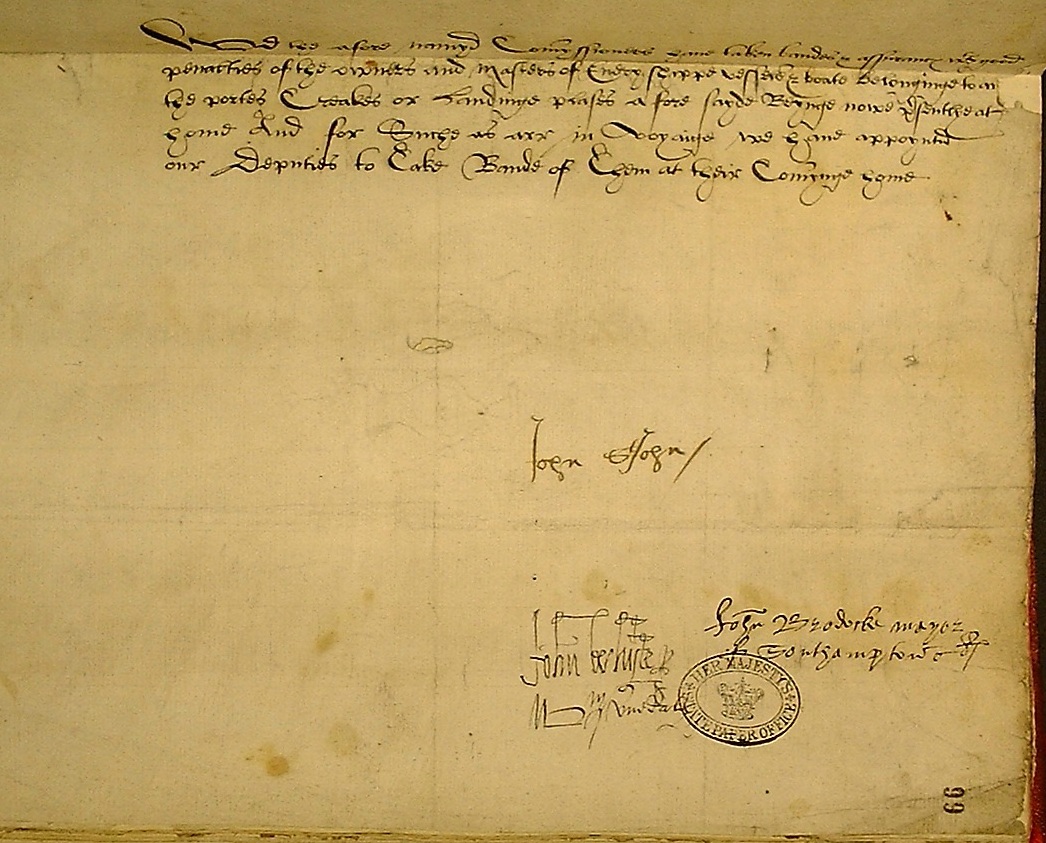 We the afore namyd Comyssioners have taken bandes & assurance
penalties of the owners and masters of Every shippe vessell & boate belonginge to any
the portes Creakes or landinge plases afore sayde Beynge nowe p'sent heat
home And for Suche as arr in Voyaige we have appoyntid
our Deputies to Take Bande of Them at their Comynge home
John St John
John Brodocke mayor
of Southampton
HER MAJESTY'S STATE PAPER OFFICE
66